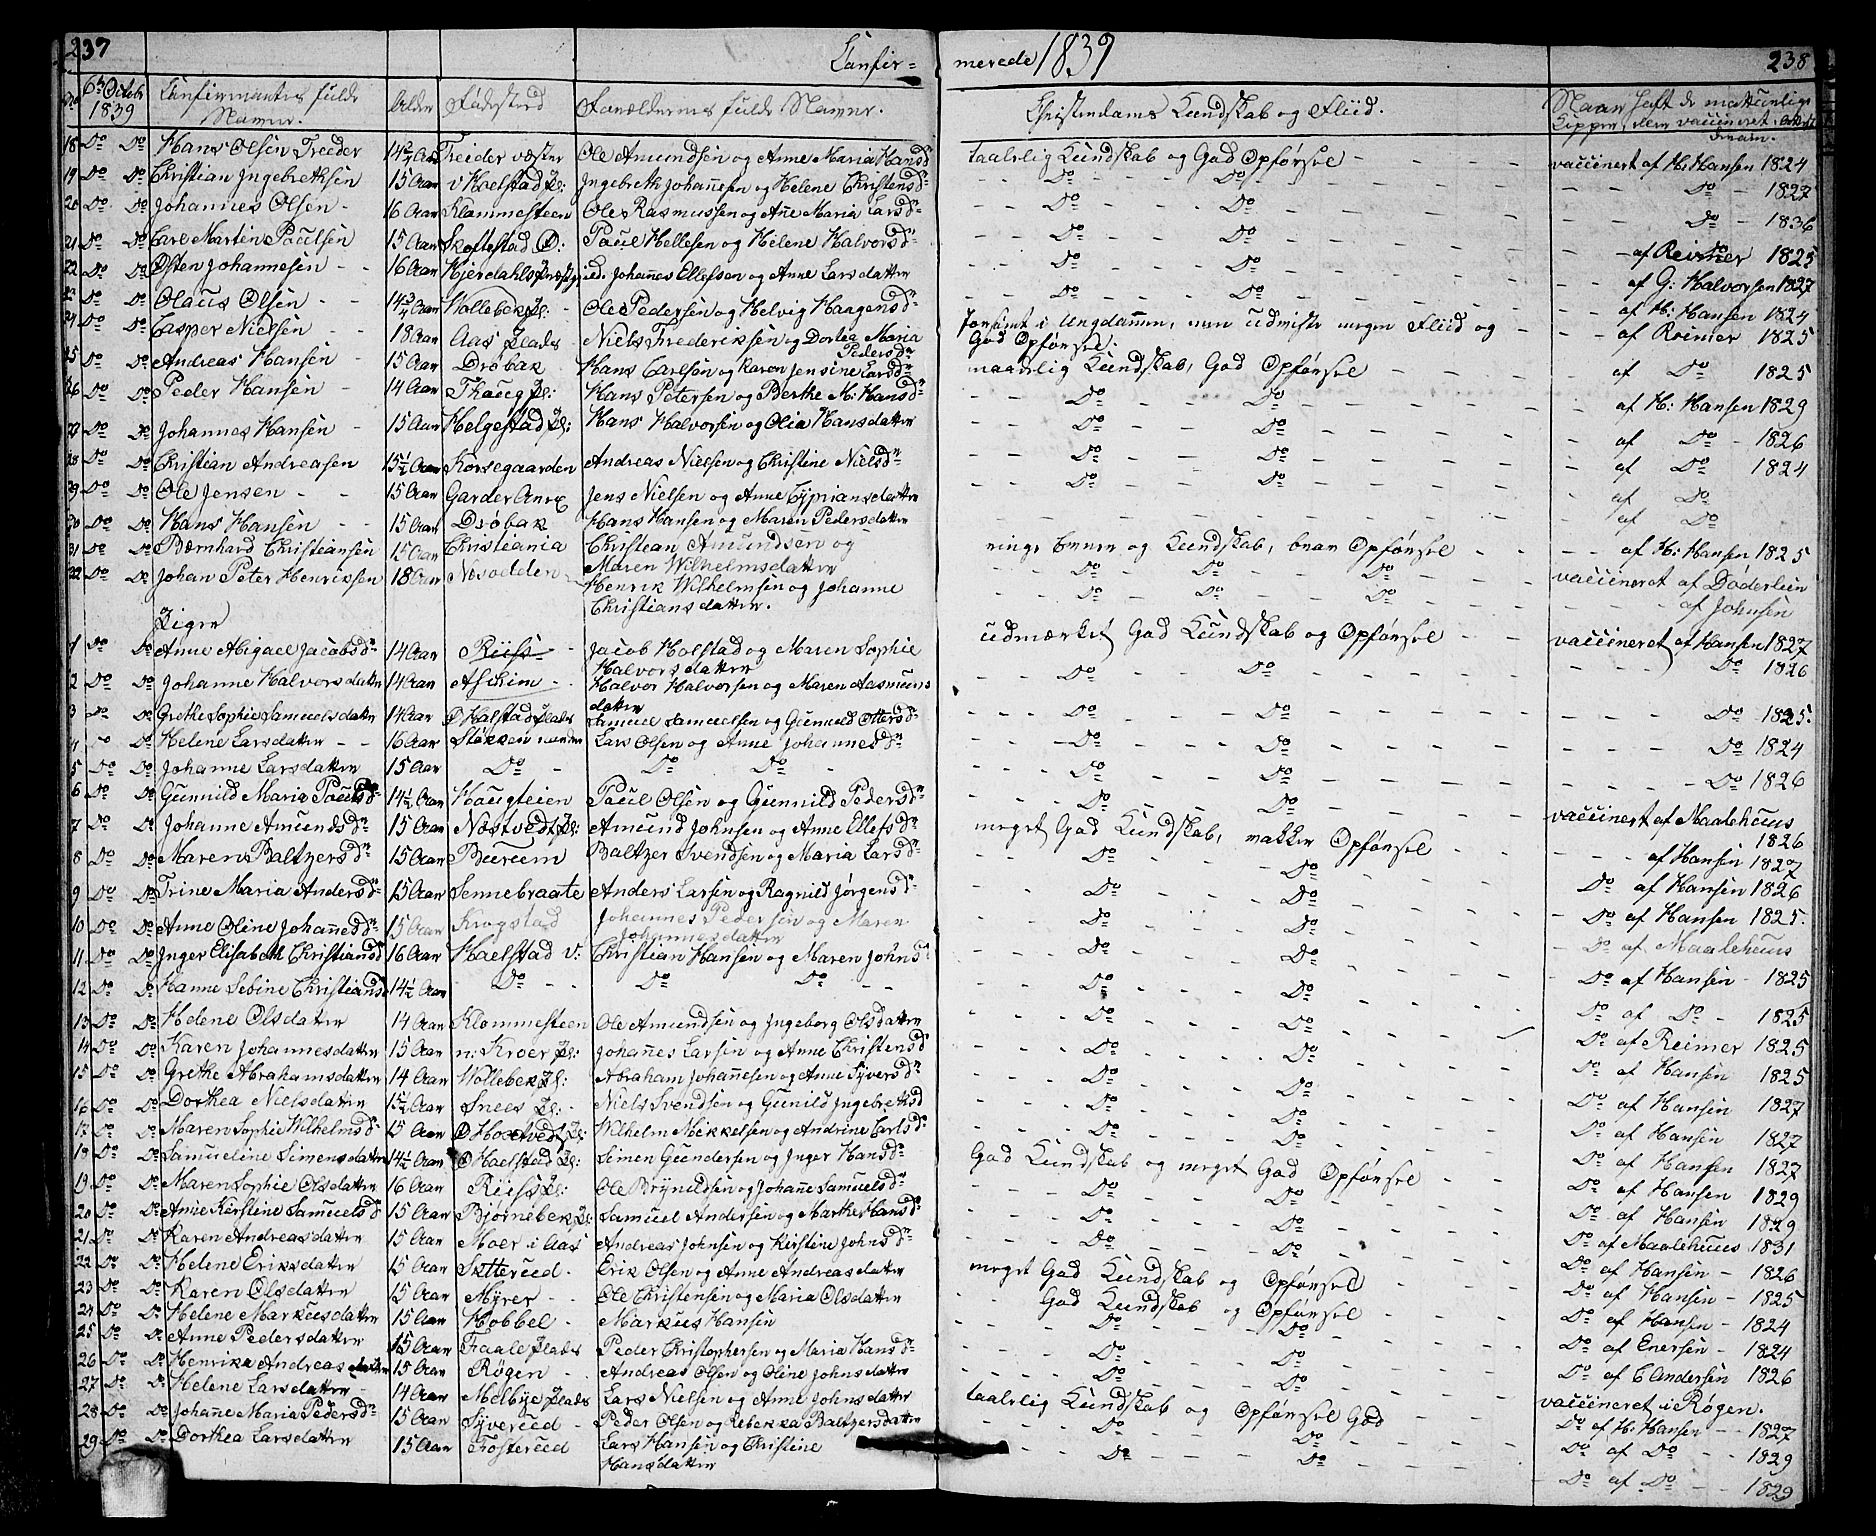 237
Confir-
merede 1839
238
No 6te Octobr 1839 Confirmantes fulde Navne. Alder Fødested Forældrenes fulde Navne. Christendoms Kundskab og Fliid. Naar havt de naturlige Kopper, eller vaccineret
18 Do Do Hans Olsen Treider 14 3/4 Aar Treider vestre Ole Amundsen og Anne Maria Hansd taalelig Kundskab og God Opførsel - - - vaccinert af H: Hansen 1824
19 Do Do Christian Ingebrethsen 15 Aar v Haelstad Pl: Ingebreth Johannesen og Helene Christensd Do Do Do 1827
20 Do Do Johannes Olsen 16 Aar Klommesteen Ole Rasmussen og Anne Maria Larsd Do Do Do 1836
21 Do Do Carl Martin Paulsen 15 Aar Skoftestad Ø: Paul Hellesen og Helene Halvorsd Do Do af Reimer 1825
22 Do Do Østen Johannesen 16 Aar Kjerdahls Johannes Ellefsen og Anne Larsdatter Do Do af G: Halvorsen 1827
23 Do Do Olaus Olsen 14 3/4 Aar Wollebek Pl: Ole Pedersen og Helvig Haagensd Do Do af H: Hansen 1824
24 Do Do Casper Nielsen 18 Aar Aas Plads Niels Frederiksen og Dortea Maria Pedersd forsømt i Ungdommen, men udviste megen Fliid og God Opførsel. af Reimer 1825
25 Do Do Andreas Hansen 15 Aar Drøbak Hans Carlsen og Karen Jensine Larsd maadelig Kundskab, God Opførsel af Do 1825
26 Do Do Peder Hansen 14 Aar Thaug Pl: Hans Petersen og Berthe M: Hansd Do Do af H: Hansen 1829
27 Do Do Johannes Hansen 15 Aar Helgestad Pl: Hans Halvorsen og Olia Hansdatter Do Do af Do 1826
28 Do Do Christian Andreasen 15 1/2 Aar Korsegaarden Andreas Nielsen og Christine Nielsd Do Do af Do 1824
29 Do Do Ole Jensen 15 Aar Garder Anex Jens Nielsen og Anne Cypriansdatter Do Do af Do
30 Do Do Hans Hansen 15 Aar Drøbak Hans Hansen og Maren Pedersdatter af Do
31 Do Do Bernhard Christiansen 15 Aar Christiania Christian Amundsen og Maren Wilhelmsdatter ringe Evner og Kundskab, brav Opførsel af H: Hansen 1825
32 Do Do Johan Peter Henriksen 18 Aar Nesodden Henrik Wilhelmsen og Johanne Christiansdatter. Do Do Do vaccineret af Døderlein
af Johnsen
Piger
1 Do Do Anne Abigael Jacobsd 14 Aar Riiss Jacob Holstad og Maren Sophie Halvorsdatter udmærket God Kundskab og Opførsel vaccineret af Hansen 1827
2 Do Do Johanne Halvorsdatter 14 Aar Aschim Halvor Halvorsen og Maren Aasmunsdatter Do Do Do 1826
3 Do Do Grethe Sophie Samuelsdatter 14 Aar Ø Halstad Plads Samuel Samuelsen og Gunnild Ottersd Do Do Do 1825.
4 Do Do Helene Larsdatter 16 Aar Støkken nordre Lars Olsen og Anne Johannesd Do Do Do 1824
5 Do Do Johanne Larsdatter 15 Aar Do Do Do Do Do Do 1826
6 Do Do Gunnild Maria Paulsd 14 1/2 Aar Haugteien Paul Olsen og Gunnild Pedersd Do Do vaccinert af Maalehuus 1826
7 Do Do Johanne Amundsd 15 Aar Nestvedt Pl: Amund Johnsen og Anne Ellefsd meget God Kundskab, vakker Opførsel af Hansen 1827
8 Do Do Maren Baltzersd 15 Aar Burum Baltzer Svendsen og Maria Larsd Do Do Do af Hansen 1826
9 Do Do Trine Maria Andersd 15 Aar Sennebraate Anders Larsen og Ragnild Jørgensd Do Do Do af Hansen 1825.
10 Do Do Anne Oline Johannesd 15 Aar Krogstad Johannes Pedersen og Maren Johannesdatter Do Do Do af Maalehuus
11 Do Do Inger Elisabeth Christiansd 16 Aar Haelstad v: Christian Hansen og Maren Johnsd Do Do Do af Hansen 1825
12 Do Do Hanne Sebine Christiansd 14 1/2 Aar Do Do Do Do Do Do af Do 1825
13 Do Do Helene Olsdatter 14 Aar Klommesteen Ole Amundsen og Ingeborg Olsdatter Do Do Do af Reimer 1825
14 Do Do Karen Johannesdatter 15 Aar n: Kroer Pl: Johannes Larsen og Anne Christensd Do Do Do af Hansen 1825
15 Do Do Grethe Abrahamsdatter 14 Aar Wollebek Pl: Abraham Johannesen og Anne Syversd Do Do Do af Hansen 1827
16 Do Do Dorthea Nielsdatter 15 1/2 Aar Snees Pl: Niels Svendsen og Gunild Ingebretsd Do Do Do af Hansen 1827
17 Do Do Maren Sophie Wilhelmsd 15 Aar Ø Hostvedt Pl: Wilhelm Mikkelsen og Andrine Carlsd Do Do Do af Hansen 1827
18 Do Do Samueline Simensdatter 14 1/2 Aar Ø Haelstad Pl: Simen Gundersen og Inger Hansd God Kundskab og meget God Opførsel Do af Hansen 1829
19 Do Do Maren Sophie Olsdatter 16 Aar Riiss Pl: Ole Brynildsen og Johanne Samuelsd Do Do Do af Hansen 1829
20 Do Do Anne Kirstine Samuelsd 15 Aar Bjørnebek Pl: Samuel Andersen og Marthe Hansd Do Do Do af Maalehuus 1831
21 Do Do Karen Andreasdatter 15 Aar Moer i Aas Andreas Johnsen og Kirstine Johnsd Do Do Do af Hansen 1826
22 Do Do Helene Eriksdatter 15 Aar Sætterud Erik Olsen og Anne Andreasdatter meget God Kundskab og Opførsel Do af Hansen 1825
23 Do Do Karen Olsdatter 15 Aar Myrer Ole Christensen og Maria Olsdatter God Kundskab og Opførsel Do af Hansen 1824
24 Do Do Helene Markusdatter 15 Aar Hobbel Markus Hansen Do Do Do af Enersen 1824
25 Do Do Anne Pedersdatter 15 Aar Faale Plads Peder Christophersen og Maria Hansd Do Do Do af C Andersen 1826
26 Do Do Henrika Andreasdatter 15 Aar Røgen Andreas Olsen og Oline Johnsdatter Do Do vaccineret i Røgen.
27 Do Do Helene Larsdatter 14 Aar Melbye Plads Lars Nielsen og Anne Johnsdatter taalelig Kundskab og Opførsel God Do af H: Hansen 1827
28 Do Do Johanne Maria Pedersd 15 Aar Syverud Peder Olsen og Rebekka Baltzersdatter Do Do Do af Do 1829
29 Do Do Dorthea Larsdatter 15 Aar Fosterud Lars Hansen og Christine Hansdatter Do Do Do af Do 1829